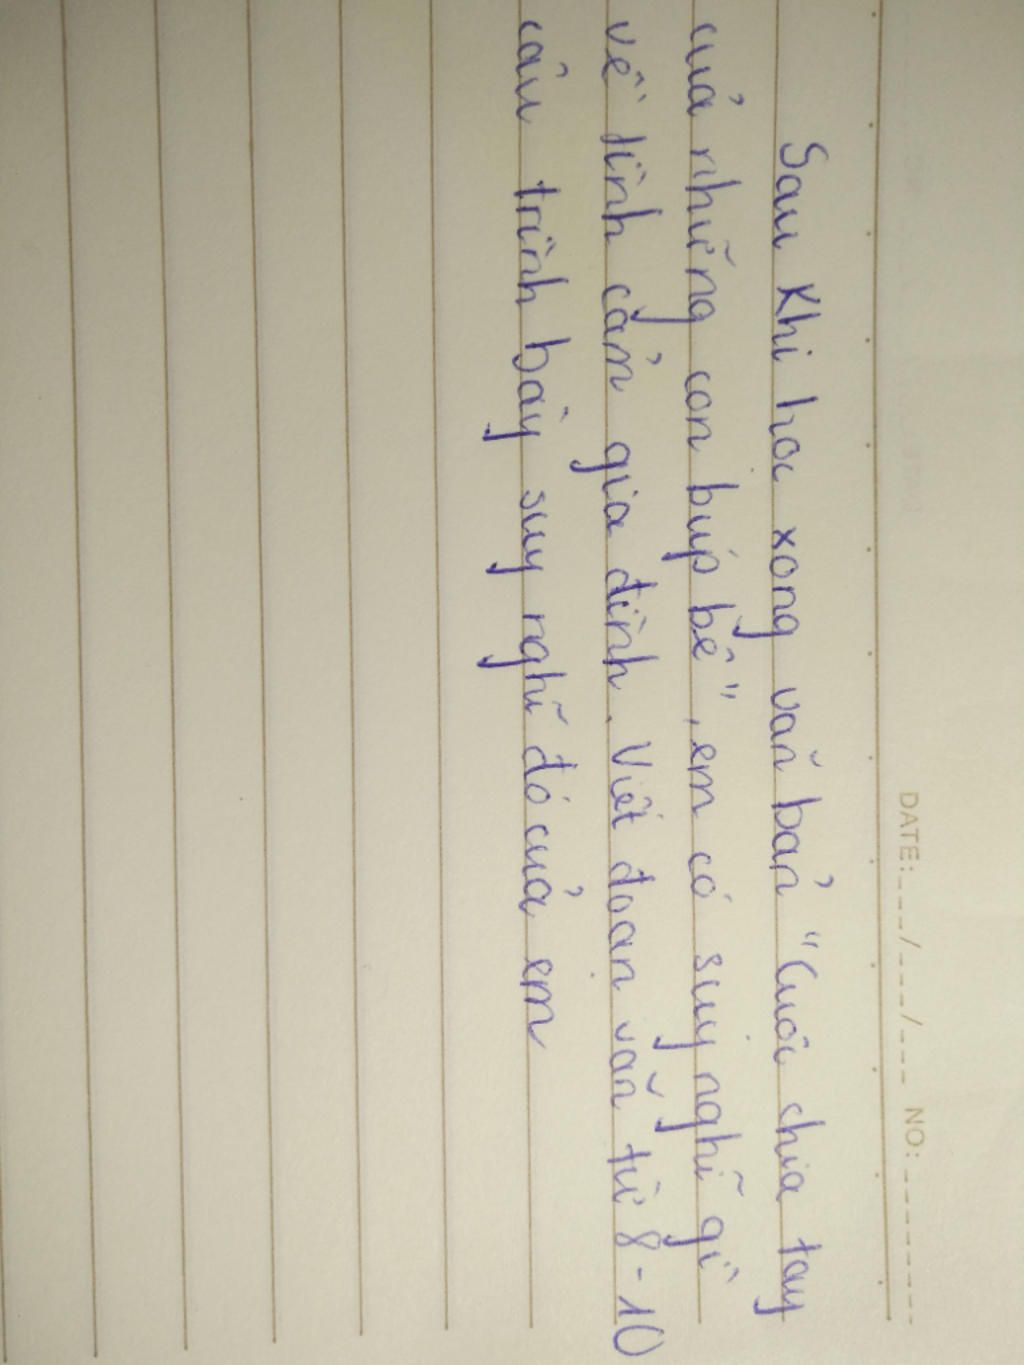 DATE:___/___/___ NO:______
Sau khi học xong văn bản "Cuộc chia tay
của những con búp bê", em có suy nghĩ gì
về tình cản gia đình. Viết đoạn văn từ 8-10
câu trình bày suy nghĩ đó của em